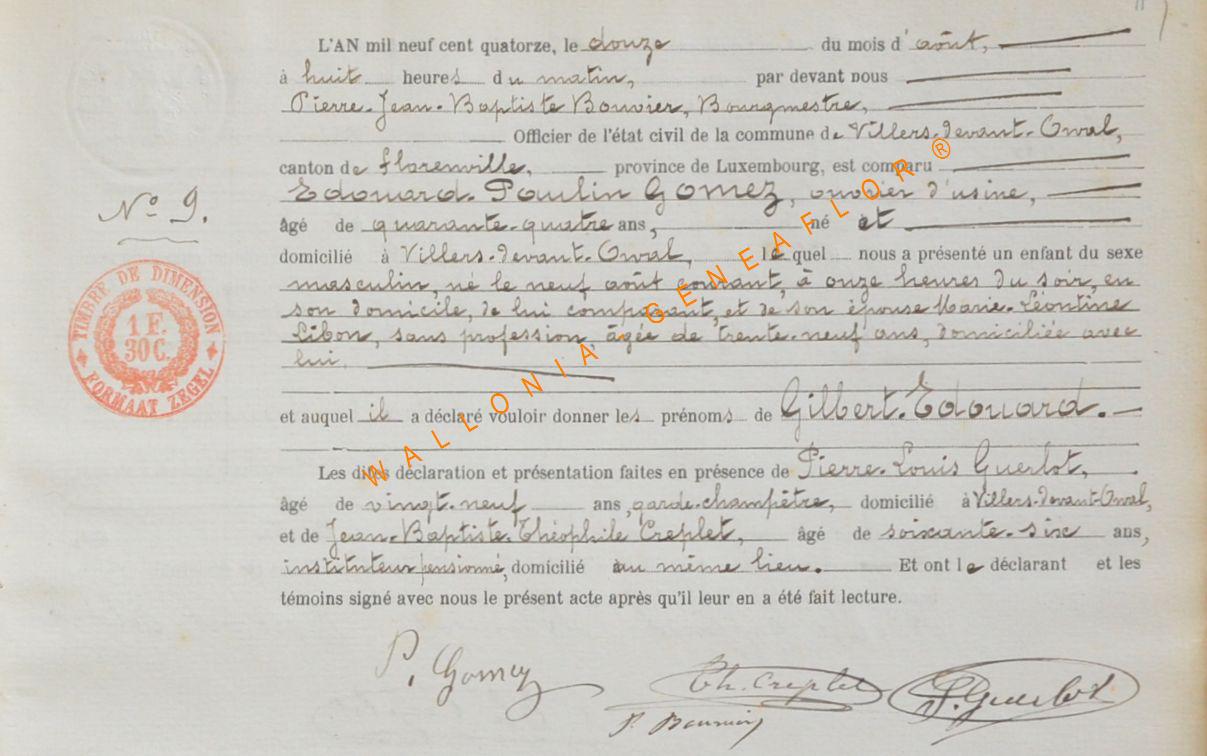 L'AN mil neuf cent quatorze, le douze du mois d'août,
à huit heures du matin, par devant nous
Pierre-Jean-Baptiste Bouvier, Bourgmestre,
Officier de l'état civil de la commune de Villers-devant-Orval,
canton de Florenville, province de Luxembourg, est comparu
Edouard-Paulin Gomez, ouvrier d'usine,
âgé de quarante-quatre ans, né et
domicilié à Villers-devant-Orval, lequel nous a présenté un enfant du sexe
masculin, né le neuf août courant, à onze heures du soir, en
son domicile, de lui comparant, et de son épouse Marie-Léontine
Libon, sans profession, âgée de trente-neuf ans, domiciliée avec
lui.
et auquel il a déclaré vouloir donner les prénoms de Gilbert-Edouard.
Les dites déclaration et présentation faites en présence de Pierre-Louis Guerlot,
âgé de vingt-neuf ans, garde-champêtre, domicilié à Villers-devant-Orval,
et de Jean-Baptiste-Théophile Creplet, âgé de soixante-six ans,
instituteur pensionné, domicilié au même lieu. Et ont le déclarant et les
témoins signé avec nous le présent acte après qu'il leur en a été fait lecture.
N° 9.
TIMBRE DE DIMENSION
1 F.
30 C.
FORMAAT ZEGEL
WALLONIA - GENEAFLOR ®
P. Gomez
Th. Creplet
P. Guerlot
P. Bouvier